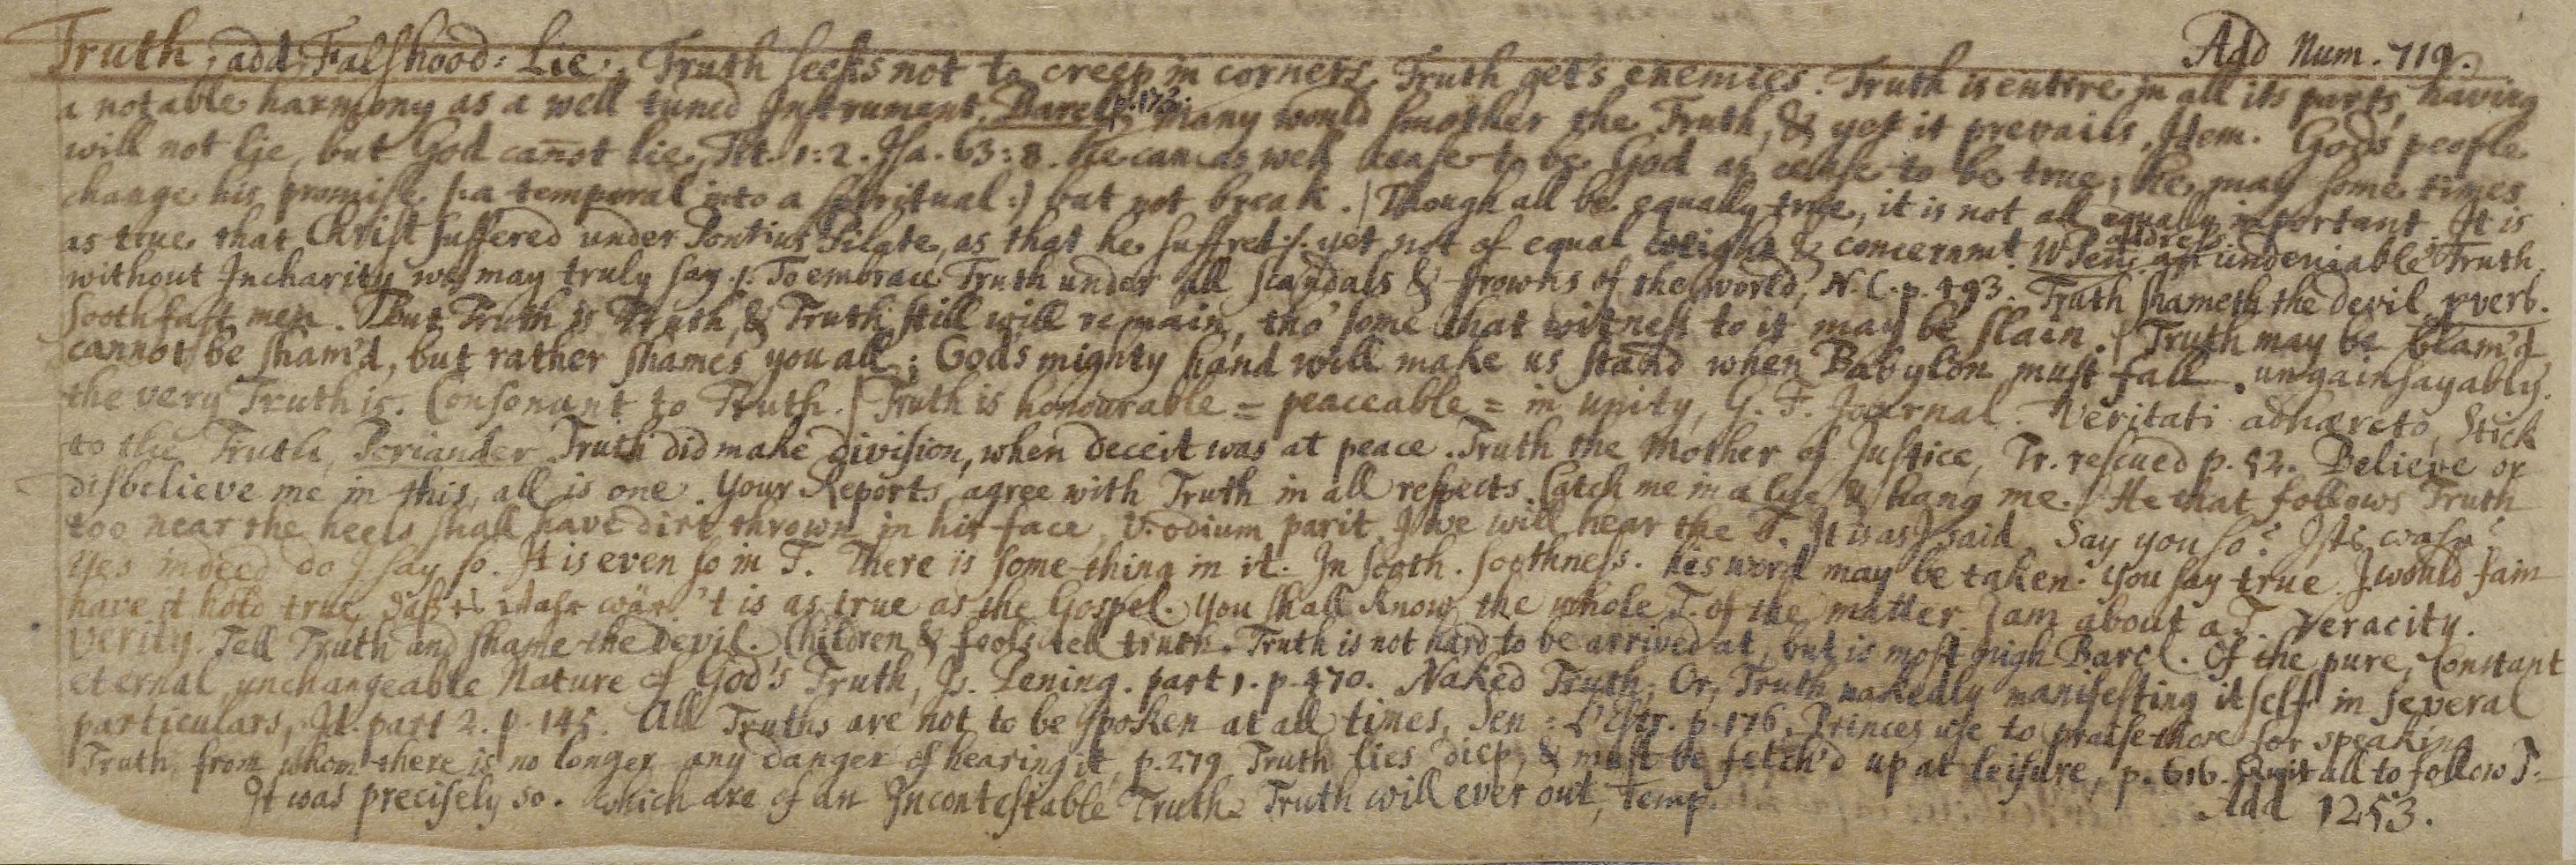 Add Num. 719.
Truth, add, Falshood: Lie. Truth seeks not to creep in corners. Truth get's enemies. Truth is entire in all its parts, having
a notable harmony as a well tuned Instrument, Barcl. p. 173. Many would smother the Truth, & yet it prevails, Idem. Gods people
will not lie, but God cañot lie, Tit. 1:2. Isa. 63:8. He can as well cease to be God as cease to be true; he may some times
change his promise (:a temporal into a spiritual:) but not break. | Though all be equally true, it is not all equally important. It is
as true that Christ suffered under Pontius Pilate, as that he suffred :/. yet not of equal weight & concernmt. Wm Pens address an undeniable Truth
without Incharity we may truly say :/. To embrace Truth under all scandals & frowns of the world, N. C. p. 493. Truth shameth the devil, pverb.
Soothfast men. But Truth is Truth, & Truth still will remain, tho' some that witness to it may be slain. | Truth may be blam'd,
cannot be sham'd, but rather shames you all; Gods mighty hand will make us stand when Babylon must fall. ungainsayably.
the very Truth is. Consonant to Truth. | Truth is honourable = peaceable = in unity, G. F. Journal. Veritati adhæreto, Stick
to the Truth, Periander Truth did make division, when deceit was at peace. Truth the Mother of Justice, Tr. rescued p. 52. Believe or
disbelieve me in this, all is one. Your Reports agree with Truth in all respects. Catch me in a lye & hang me. / He that follows Truth
too near the heels shall have dirt thrown in his face, V. odium parit. we will hear the T. It is as I said. Say you so?
Yes indeed do I say so. It is even so in T. There is some-thing in it. In sooth. soothness. his word may be taken. You say true. I would fain
have it hold true, wär. 't is as true as the Gospel. You shall know the whole T. of the matter. I am about a T. Veracity.
Verity. Tell Truth and shame the Devil. Children & fools tell truth. Truth is not hard to be arrived at, but is most nigh Barcl. Of the pure, Constant
eternal unchangeable Nature of God's Truth, Is. Pening. part 1. p. 470. Naked Truth, Or, Truth nakedly manifesting itself in several
particulars, It. part 2. p. 145. All Truths are not to be spoken at all times, Sen: L'Estr. p. 176. Princes use to praise those for speaking
Truth, from whom there is no longer any danger of hearing it, p. 279 Truth lies diep, & must be fetch'd up at leisure, p. 616. Quit all to follow T.
It was precisely so. which are of an Incontestable Truth. Truth will ever out, Temp.
Add 1253.